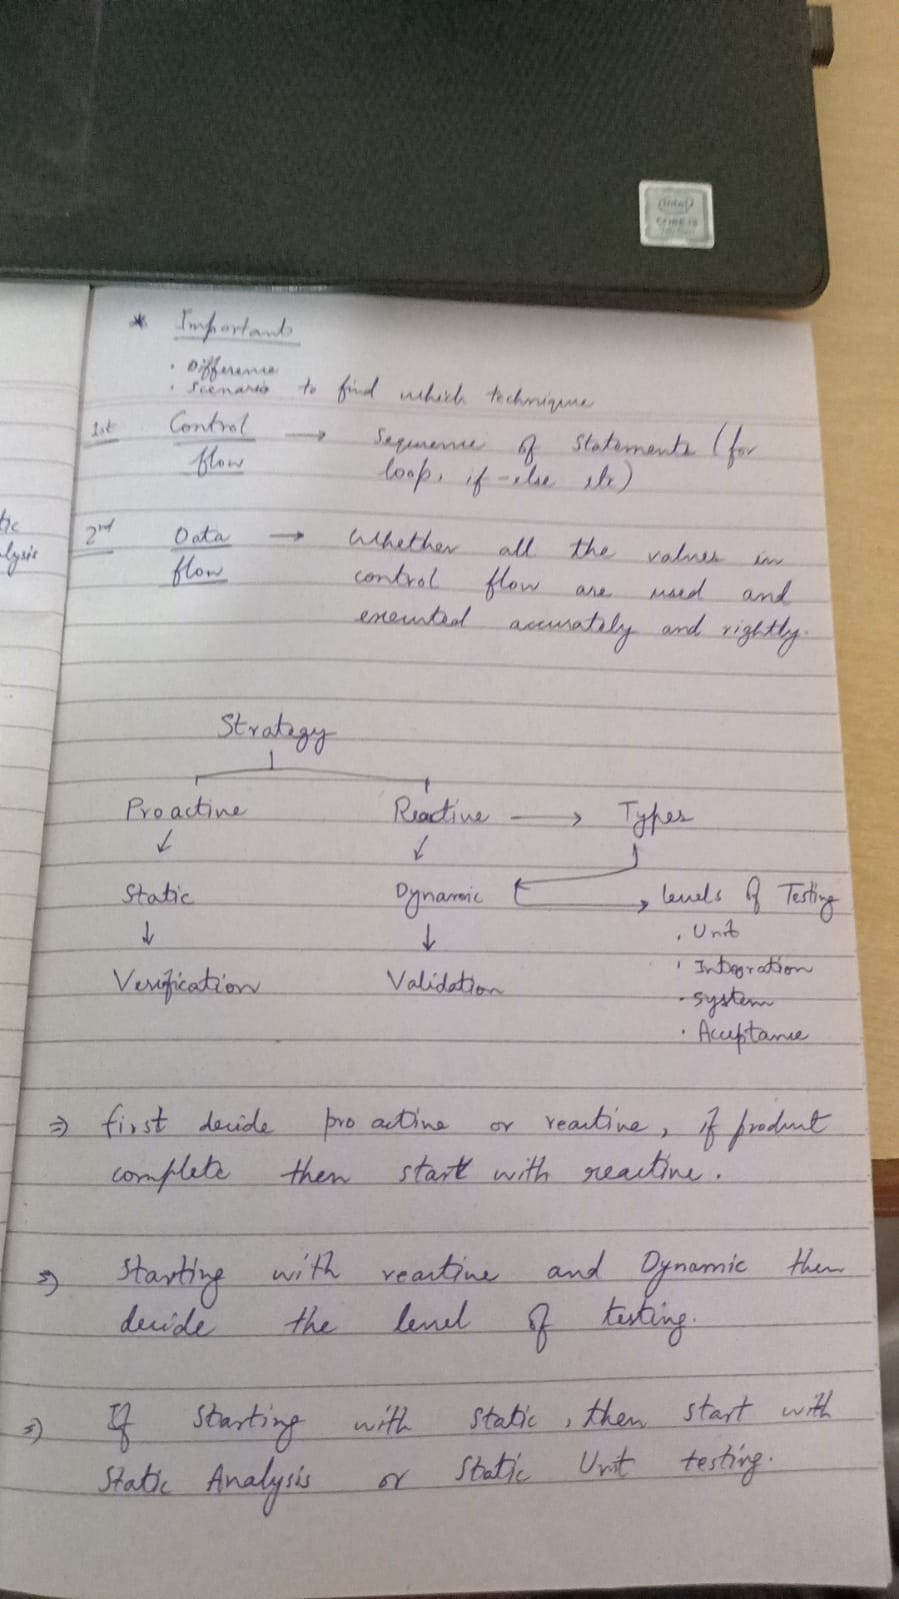 intel
CORE i3
tic
lysis
* Important
. Difference
. Scenario to find which technique
1st Control → Sequence of statements (for
flow loop, if-else etc)
2nd Data → Whether all the values in
flow control flow are used and
executed accurately and rightly.
Strategy
Proactive Reactive → Types
↙ ↙
Static Dynamic → levels of Testing
↓ ↓ . Unit
Verification Validation . Integration
. system
. Acceptance
⇒ first decide pro active or reactive, if product
complete then start with reactive.
⇒ Starting with reactive and Dynamic then
decide the level of testing.
⇒ If starting with static, then start with
Static Analysis or Static Unit testing.